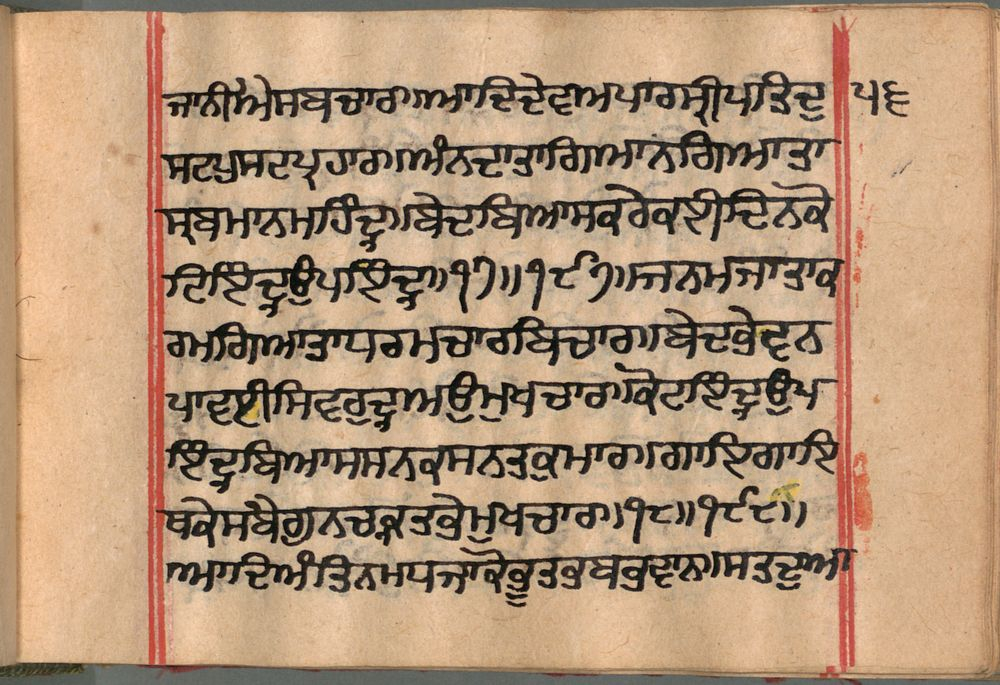 ਜਾਨੀਐਸਬਚਾਰ।ਆਦਿਦੇਵਅਪਾਰਸ੍ਰੀਪਤਿਦੁ ੫੬
ਸਟਪੁਸਟਪ੍ਰਹਾਰ।ਅੰਨਦਾਤਾਗਿਆਨਗਿਆਤਾ
ਸ੍ਰਬਮਾਨਮਹਿੰਦ੍ਰ।ਬੇਦਬਿਆਸਕਰੇਕਈਦਿਨਕੋ
ਟਿਇੰਦ੍ਰਉਪਇੰਦ੍ਰ॥੧੭॥੧੯੭॥ਜਨਮਜਾਤਾਕ
ਰਮਗਿਆਤਾਧਰਮਚਾਰਬਿਚਾਰ।ਬੇਦਭੇਵਨ
ਪਾਵਈਸਿਵਰੁਦ੍ਰਅਉਮੁਖਚਾਰ।ਕੋਟਇੰਦ੍ਰਉਪ
ਇੰਦ੍ਰਬਿਆਸਸਨਕਸਨਤਕੁਮਾਰ।ਗਾਇਗਾਇ
ਥਕੇਸਬੈਗੁਨਚਕ੍ਰਤਭੇਮੁਖਚਾਰ॥੧੮॥੧੯੮॥
ਆਦਿਅੰਤਿਨਮਧਜਾਕੋਭੂਤਭਬਭਵਾਨ।ਸਤਦੁਆ